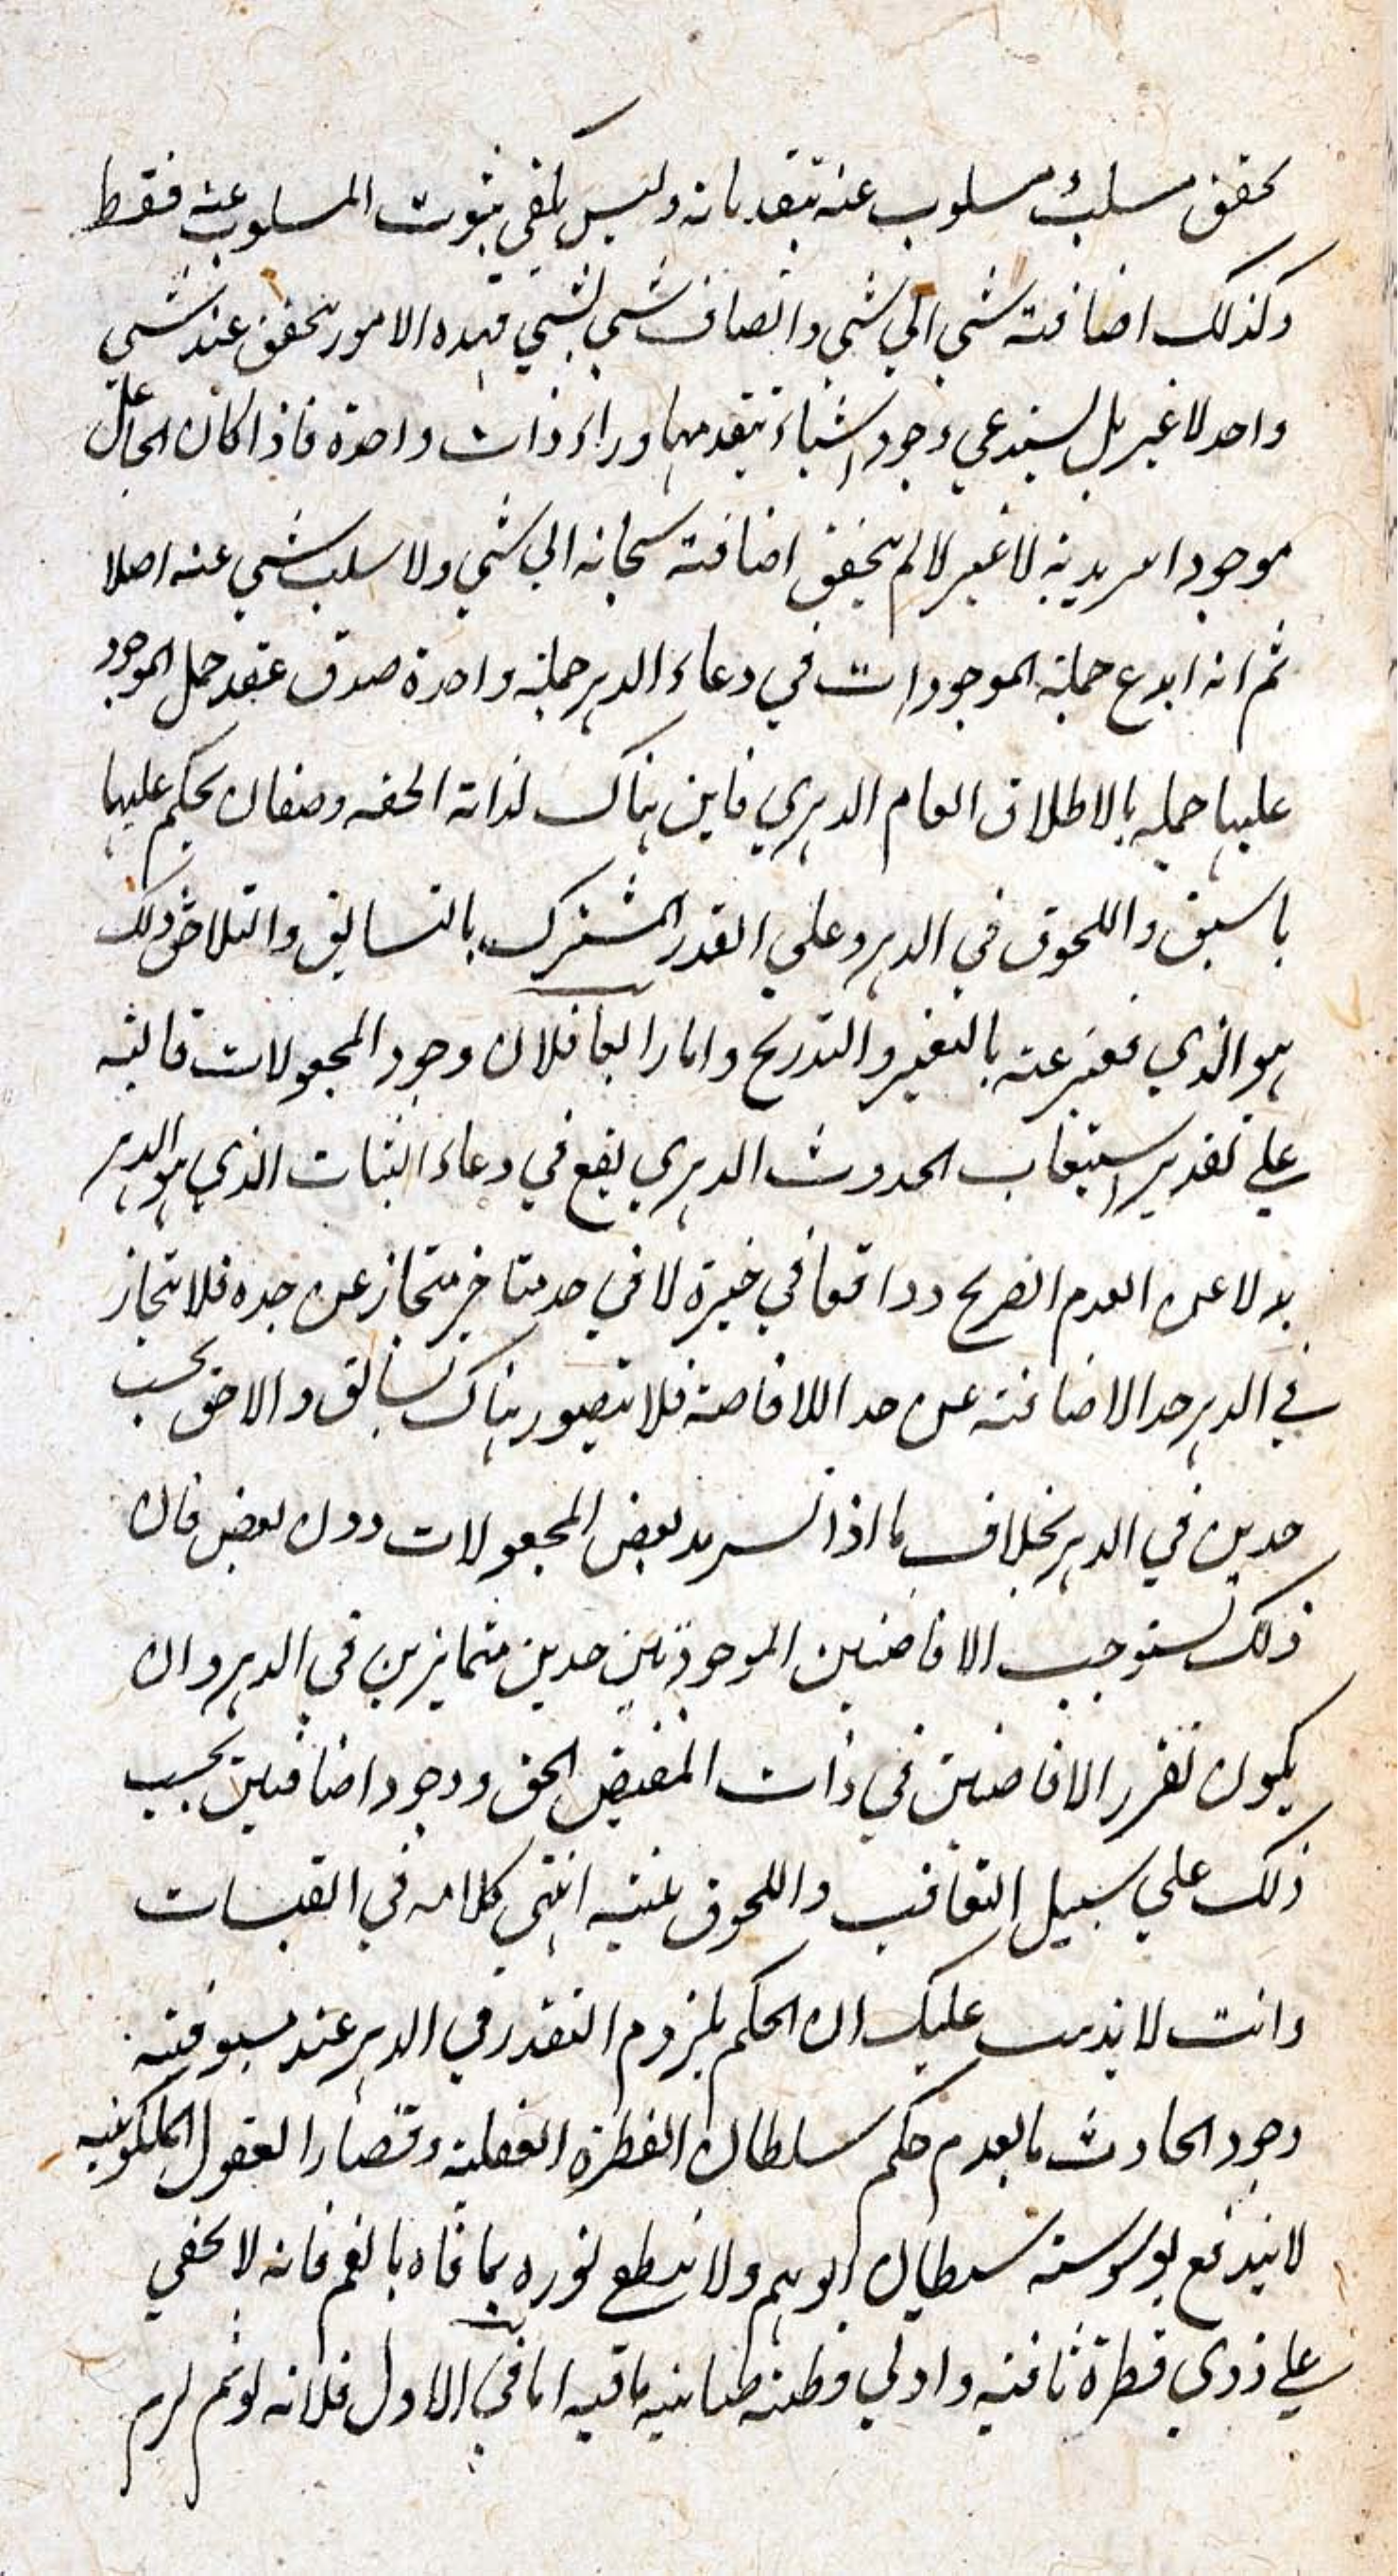 تحقق مسلب مسلوب عنه يتقدمانه وليس يكفى ثبوت المسلوب عنه فقط
وكذلك اضافة شي الي شي واتصاف شي بشي فهذه الامور يتحقق عند شي
واحد لا غير بل يستدعي وجود اشياء يتقدمها وراء ذات واحدة فاذا كان الجاعل
موجودا سرمديته لا غير لا لم يتحقق اضافته سبحانه الي شي ولا سلب شي عنه اصلا
ثم انه ابدع جملة الموجودات في وعاء الدهر جملة واحدة صدق عقد حمل الموجود
عليها جملة بالاطلاق العام الدهري فاين هناك لذاته الحقه وصفان يحكم عليها
باسبق واللحوق في الدهر وعلي القدر المشترك بالتسابق والتلاحق وذلك
هو الذي نعبر عنه بالتغير والتدريج واما رابعا فلان وجود المجعولات قاطبة
علي تقدير استيعاب الحدوث الدهري يقع في وعاء الثبات الذي هو الدهر
بدلا عن العدم الصريح وواقعا في حيزه لا في حد متاخر متحاز عن حده فلا يتحاز
في الدهر حد الاضافة عن حد اللا فاضة فلا يتصور هناك تسابق والاحق بحسب
حدين في الدهر بخلاف ما اذا تسرمد بعض المجعولات دون بعض فان
ذلك يستوجب الافاضتين الموجودتين حدين متمايزين في الدهر وان
يكون تقرر الافاضتين في ذات المفيض الحق ووجود اضافتين بحسب
ذلك علي سبيل التعاقب واللحوق عنه انتهى كلامه في القبسات
وانت لا يذهب عليك ان الحكم بلزوم التقدر في الدهر عند مسبوقية
وجود الحادث بالعدم حكم سلطان الفطرة العقلية وقصارا العقول الملكوتية
لا يندفع بوسوسة شيطان الوهم ولا ينطع نوره بما فاه بالفم فانه لا يخفي
علي ذوي فطرة ثاقبة واولي فطنة طباسية ما فيه اما في الاول فلانه لو تم لزم